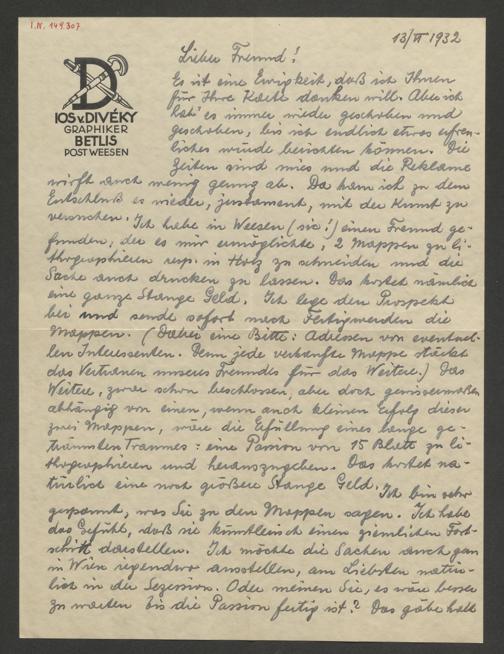 I.N. 149.307
13/VI 1932
D
IOS v. DIVÉKY
GRAPHIKER
BETLIS
POST WEESEN
Lieber Freund!
Es ist eine Ewigkeit, daß ich Ihnen
für Ihre Karte danken will. Aber ich
hab es immer wieder geschoben und
geschoben, bis ich endlich etwas erfreu-
liches würde berichten können. Die
Zeiten sind mies und die Reklame
wirft auch wenig genug ab. Da kam ich zu dem
Entschluß es wieder, justament, mit der Kunst zu
versuchen. Ich habe in Weesen (sic!) einen Freund ge-
funden, der es mir ermöglichte, 2 Mappen zu li-
thographieren resp. in Holz zu schneiden und die
Sache auch drucken zu lassen. Das kostet nämlich
eine ganze Stange Geld. Ich lege den Prospekt
bei und sende sofort nach Fertigwerden die
Mappen. (Dabei eine Bitte: Adressen von eventuel-
len Interessenten. Denn jede verkaufte Mappe stärkt
das Vertrauen unseres Freundes für das Weitere.) Das
Weitere, zwar schon beschlossen, aber doch gewissermaßen
abhängig von einen, wenn auch kleinen Erfolg dieser
zwei Mappen, wäre die Erfüllung eines lange ge-
träumten Traumes: eine Passion von 15 Blatt zu li-
thographieren und herauszugeben. Das kostet na-
türlich eine noch größere Stange Geld. Ich bin sehr
gespannt, was Sie zu den Mappen sagen. Ich habe
das Gefühl, daß sie künstlerisch einen ziemlichen Fort-
schritt darstellen. Ich möchte die Sachen auch gern
in Wien irgendwo ausstellen, am Liebsten natür-
lich in der Sezession. Oder meinen Sie, es wäre besser
zu warten bis die Passion fertig ist? Das gäbe halt